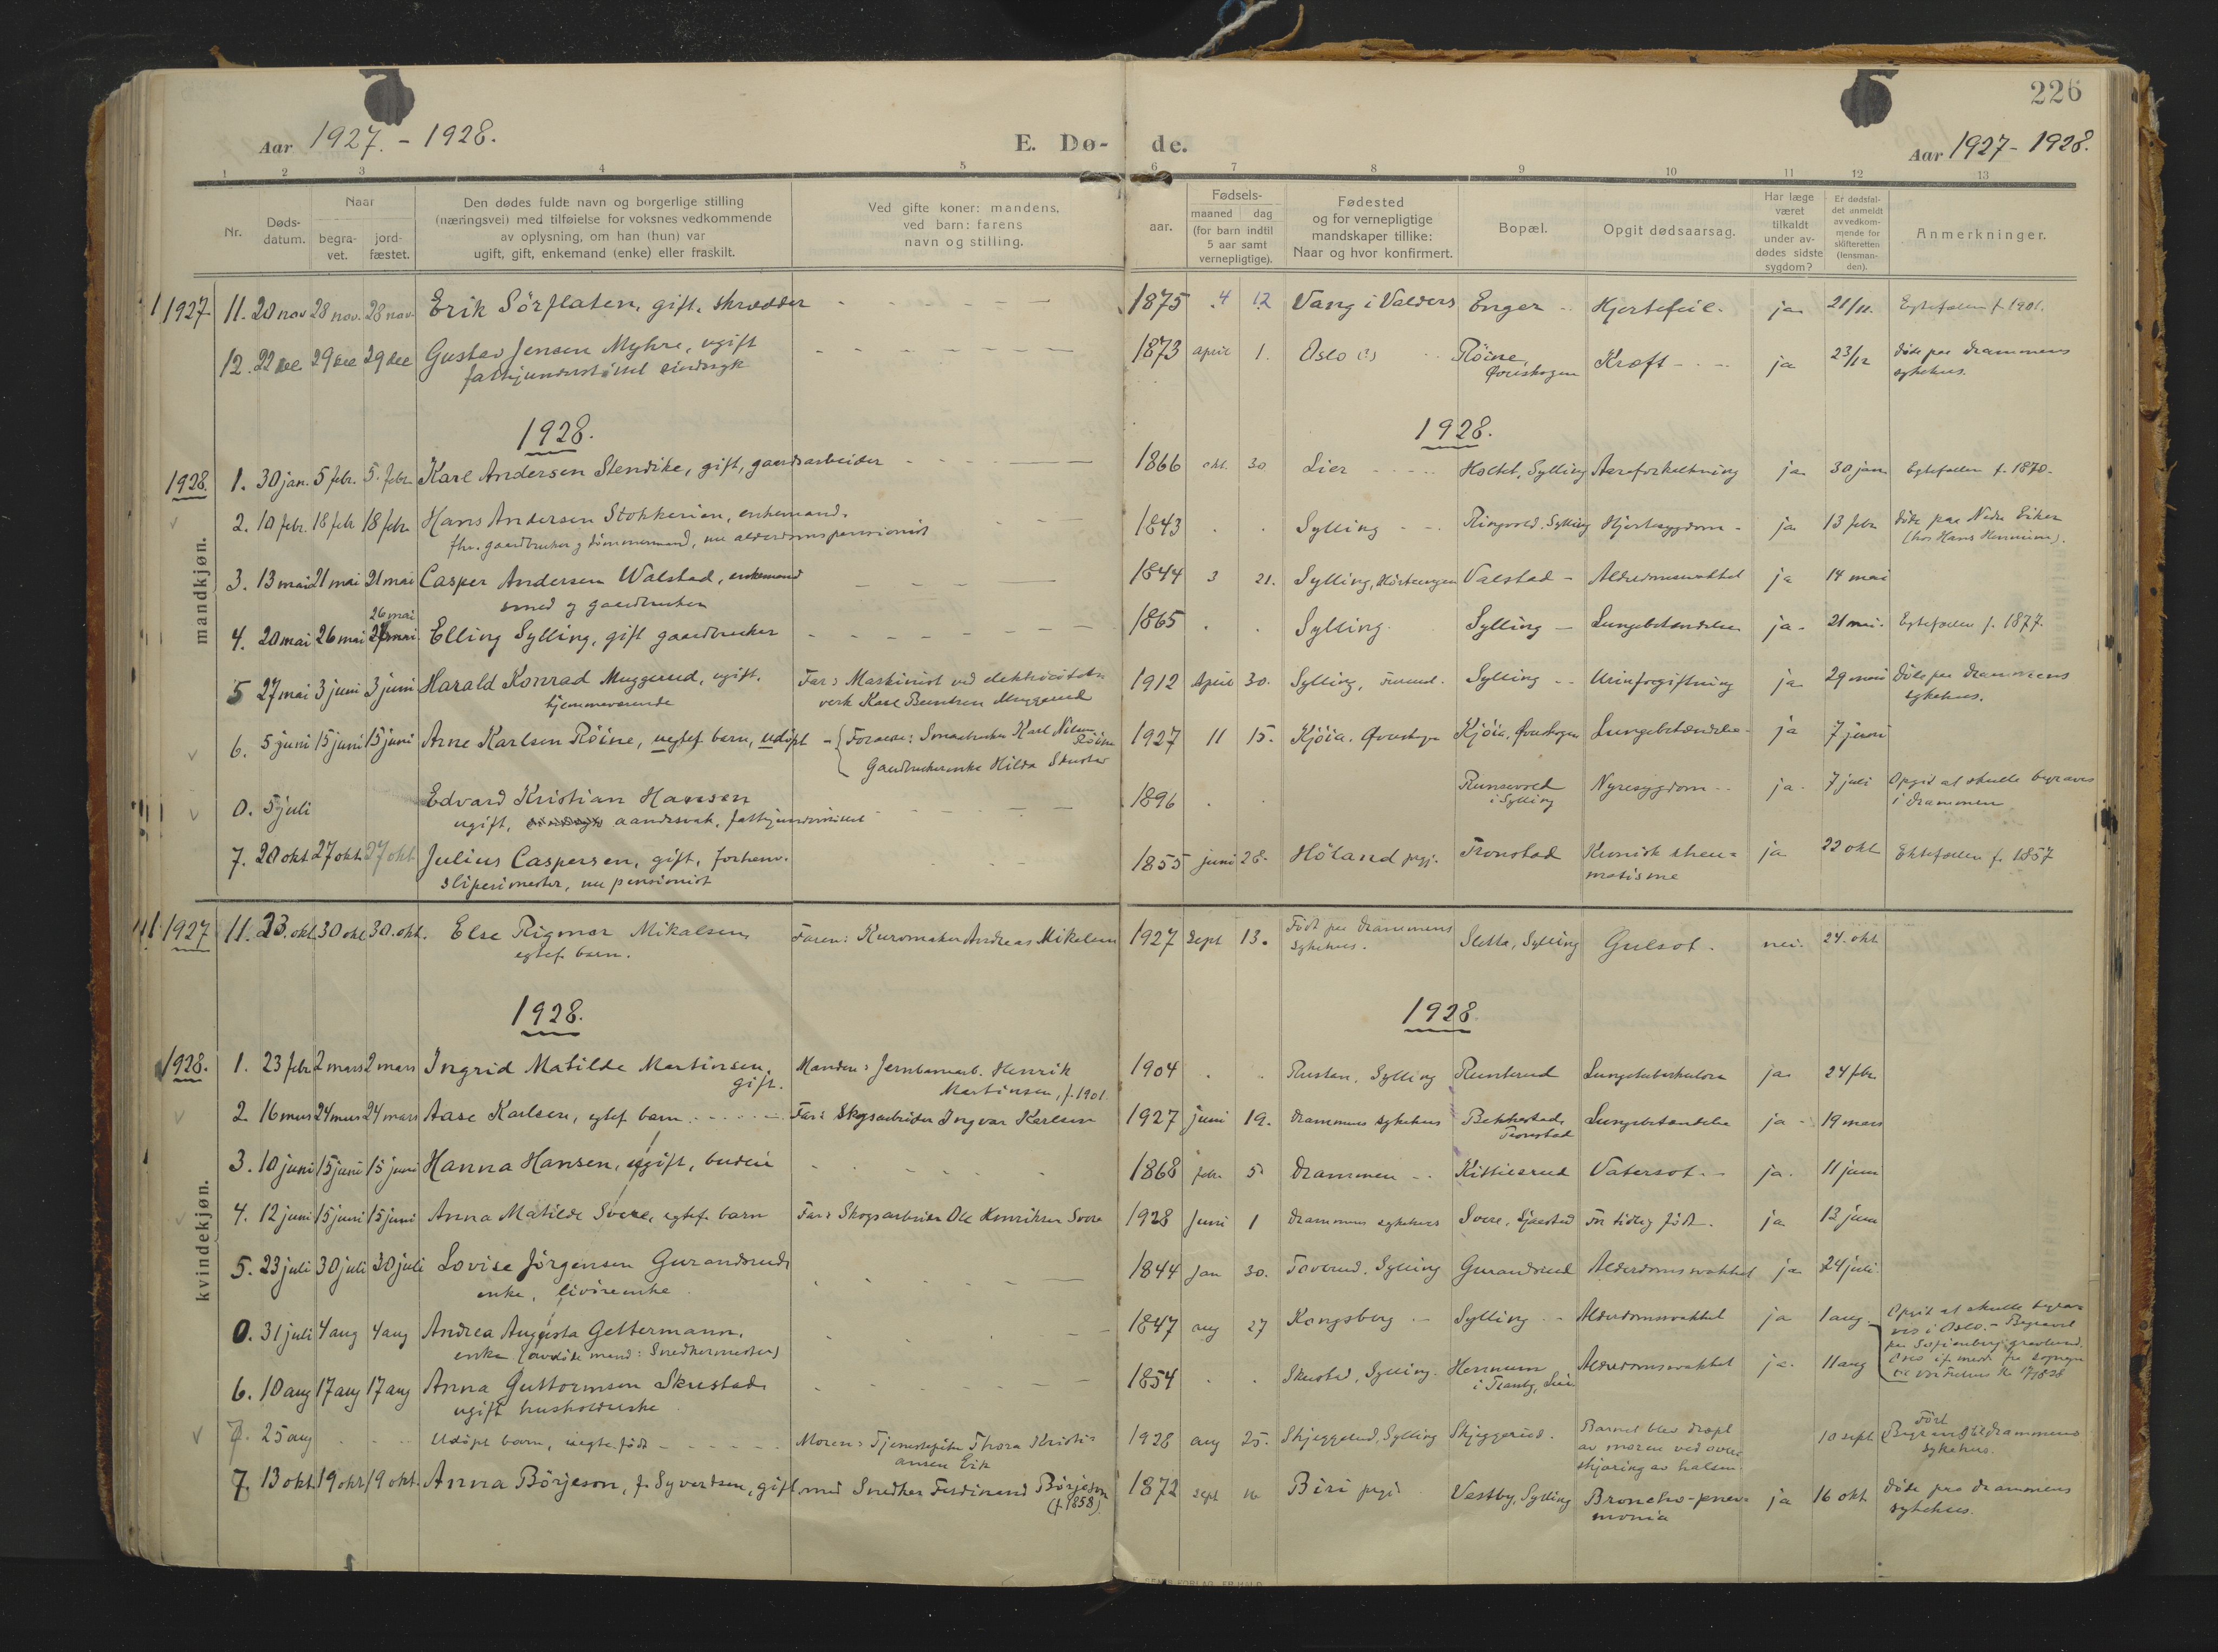 226
Aar 1927. - 1928.
E. Dø- de.
Aar 1927 - 1928.
1 2 3 4 5 6 7 8 9 10 11 12 13
Nr.
Døds-
datum.
Naar
begra-
vet.
jord-
fæstet.
Den dødes fulde navn og borgerlige stilling
(næringsvei) med tilføielse for voksnes vedkommende
av oplysning, om han (hun) var
ugift, gift, enkemand (enke) eller fraskilt.
Ved gifte koner: mandens,
ved barn: farens
navn og stilling.
aar.
Fødsels-
maaned dag
(for barn indtil
5 aar samt
vernepligtige).
Fødested
og for vernepligtige
mandskaper tillike:
Naar og hvor konfirmert.
Bopæl.
Opgit dødsaarsag.
Har læge
været
tilkaldt
under av-
dødes sidste
sygdom?
Er dødsfal-
det anmeldt
av vedkom-
mende for
skifteretten
(lensman-
den).
Anmerkninger.
mandkjøn.
1927. 11. 20 nov 28 nov. 28 nov. Erik Sörflaten, gift, skrædder 1875 4 12 Vang i Valders Enger Hjertefeil. ja 21/11. Egtefællen f. 1901.
12. 22 dec 29 dec 29 dec Gustav Jensen Myhre, ugift 1873 april 1. Oslo (?) Röine, Kræft ja 23/12 döde paa Drammens
fattigunderstöttet sindssyk Øverskogen sykehus.
1928. 1928.
1928. 1. 30 jan. 5 febr. 5. febr. Karl Andersen Stendike, gift, gaardsarbeider 1866 okt. 30 Lier Holtet, Sylling Aareforkalkning ja 30 jan Egtefællen f. 1870.
2. 10 febr. 18 febr 18 febr Hans Andersen Stokkerien, enkemand. 1843 Sylling Ringvold, Sylling Hjertesygdom ja 13 febr döde paa Nedre Eiker
fhv. gaardbruker og tömmermand, nu alderdomspensionist (hos Hans Hennum).
3. 13 mai 21 mai 21 mai Casper Andersen Walstad, enkemand 1844 3 21. Sylling, Valstad Alderdomssvakhet ja 14 mai
smed og gaardbruker
26 mai
4. 20 mai 26 mai Elling Sylling, gift gaardbruker 1865 Sylling. Sylling Lungebetændelse ja 21 mai. Egtefællen f. 1877.
5 27 mai 3 juni 3 juni Harald Konrad Muggerud, ugift. Far: Maskinist ved elektricitets 1912 April 30. Sylling, Sylling Urinforgiftning ja 29 mai Döde paa Drammens
hjemmeværende verk Karl Berntsen Muggerud sykehus.
6. 5 juni 15 juni 15 juni Arne Karlsen Röine, uegtef. barn, udöpt Foræ: Smaabruker Karl Nilsen Röine 1927 11 15. Kjöia, Øverskogen Kjöia, Øverskogen Lungebetændelse ja 7 juni
Gaardbrukerenke Hilda Skustad
0. 5 juli Edvard Kristian Hansen 1896 Runsevold Nyresygdom ja 7 juli Opgit at skulle begraves
ugift, aandssvak, fattigunderstöttet i Sylling i Drammen
7. 20 okt. 27 okt. 27 okt Julius Caspersen, gift, forhenv. 1855 juni 28. Höland prgj. Tronstad Kronisk rheu= ja 22 okt Ektefællen f. 1857
sliperimester, nu pensionist matisme
kvindekjøn.
1927 11. 23. okt. 30 okt. 30. okt. Else Rigmor Mikalsen, Faren: Kurvmaker Andreas Mikalsen 1927 Sept 13. Född paa Drammens Sletta, Sylling Gulsot. nei. 24. okt
egtef. barn. sykehus.
1928. 1928.
1928. 1. 23 febr 2 mars 2 mars Ingrid Matilde Martinsen, Manden: Jernbanearb. Henrik 1904 Rustan, Sylling Runterud Lungetuberkulose ja 24 febr
gift. Martinsen, f. 1901.
2. 16 mars 24 mars 24 mars Aase Karlsen, egtef. barn. Far: Skogsarbeider Ingvar Karlsen 1927 juni 19. Drammens sykehus Bekkestad, Lungebetændelse ja 19 mars
Tronstad
3. 10 juni 15 juni 15 juni Hanna Hansen, ugift, budeie 1868 febr. 5 Drammen Kittilsrud Vatersot ja. 11 juni
4. 12 juni 15 juni 15 juni Anna Matilde Svere, egtef. barn Far: Skogsarbeider Ole Henriksen Svere 1928 Juni 1 Drammens sykehus Svere, For tidlig född. ja 13 juni
5. 23 juli 30 juli 30 juli Lovise Jörgensen Gurandsrud, 1844 Jan 30. Toverud, Sylling Gurandsrud Alderdomssvakhet ja 24 juli.
enke, livöreenke
0. 31 juli 4 aug 4 aug Andrea Augusta Gettermann, 1847 aug 27 Kongsberg Sylling Alderdomssvakhet ja 1 aug Opgit at skulle begra=
enke (avdöde mand: Snedkermester) ves i Oslo. - Begravet
paa Sofienberg gravlund
6. 10 aug 17 aug 17 aug Anna Guttormsen Skrestad, 1854 Skustad, Sylling. Hennum Alderdomssvakhet ja. 11 aug
ugift husholderske i Tranby, Lier
7. 25 aug Udöpt barn, uegte född Moren: Tjenestepike Thora Kristi= 1928 aug 25. Skjeggerud, Sylling Skjeggerud. Barnet blev dræpt 10 sept Fört
ansen Eik av moren ved over= til Drammens
skjæring av halsen. sykehus.
7. 13 okt. 19 okt. 19 okt. Anna Börjeson, f. Syvertsen, gift med Snedker Ferdinand Börjeson 1872 sept 16 Biri prgj. Vestby, Sylling Broncho-pnev= ja 16 okt döde paa Drammens
(f. 1858). monia sykehus.